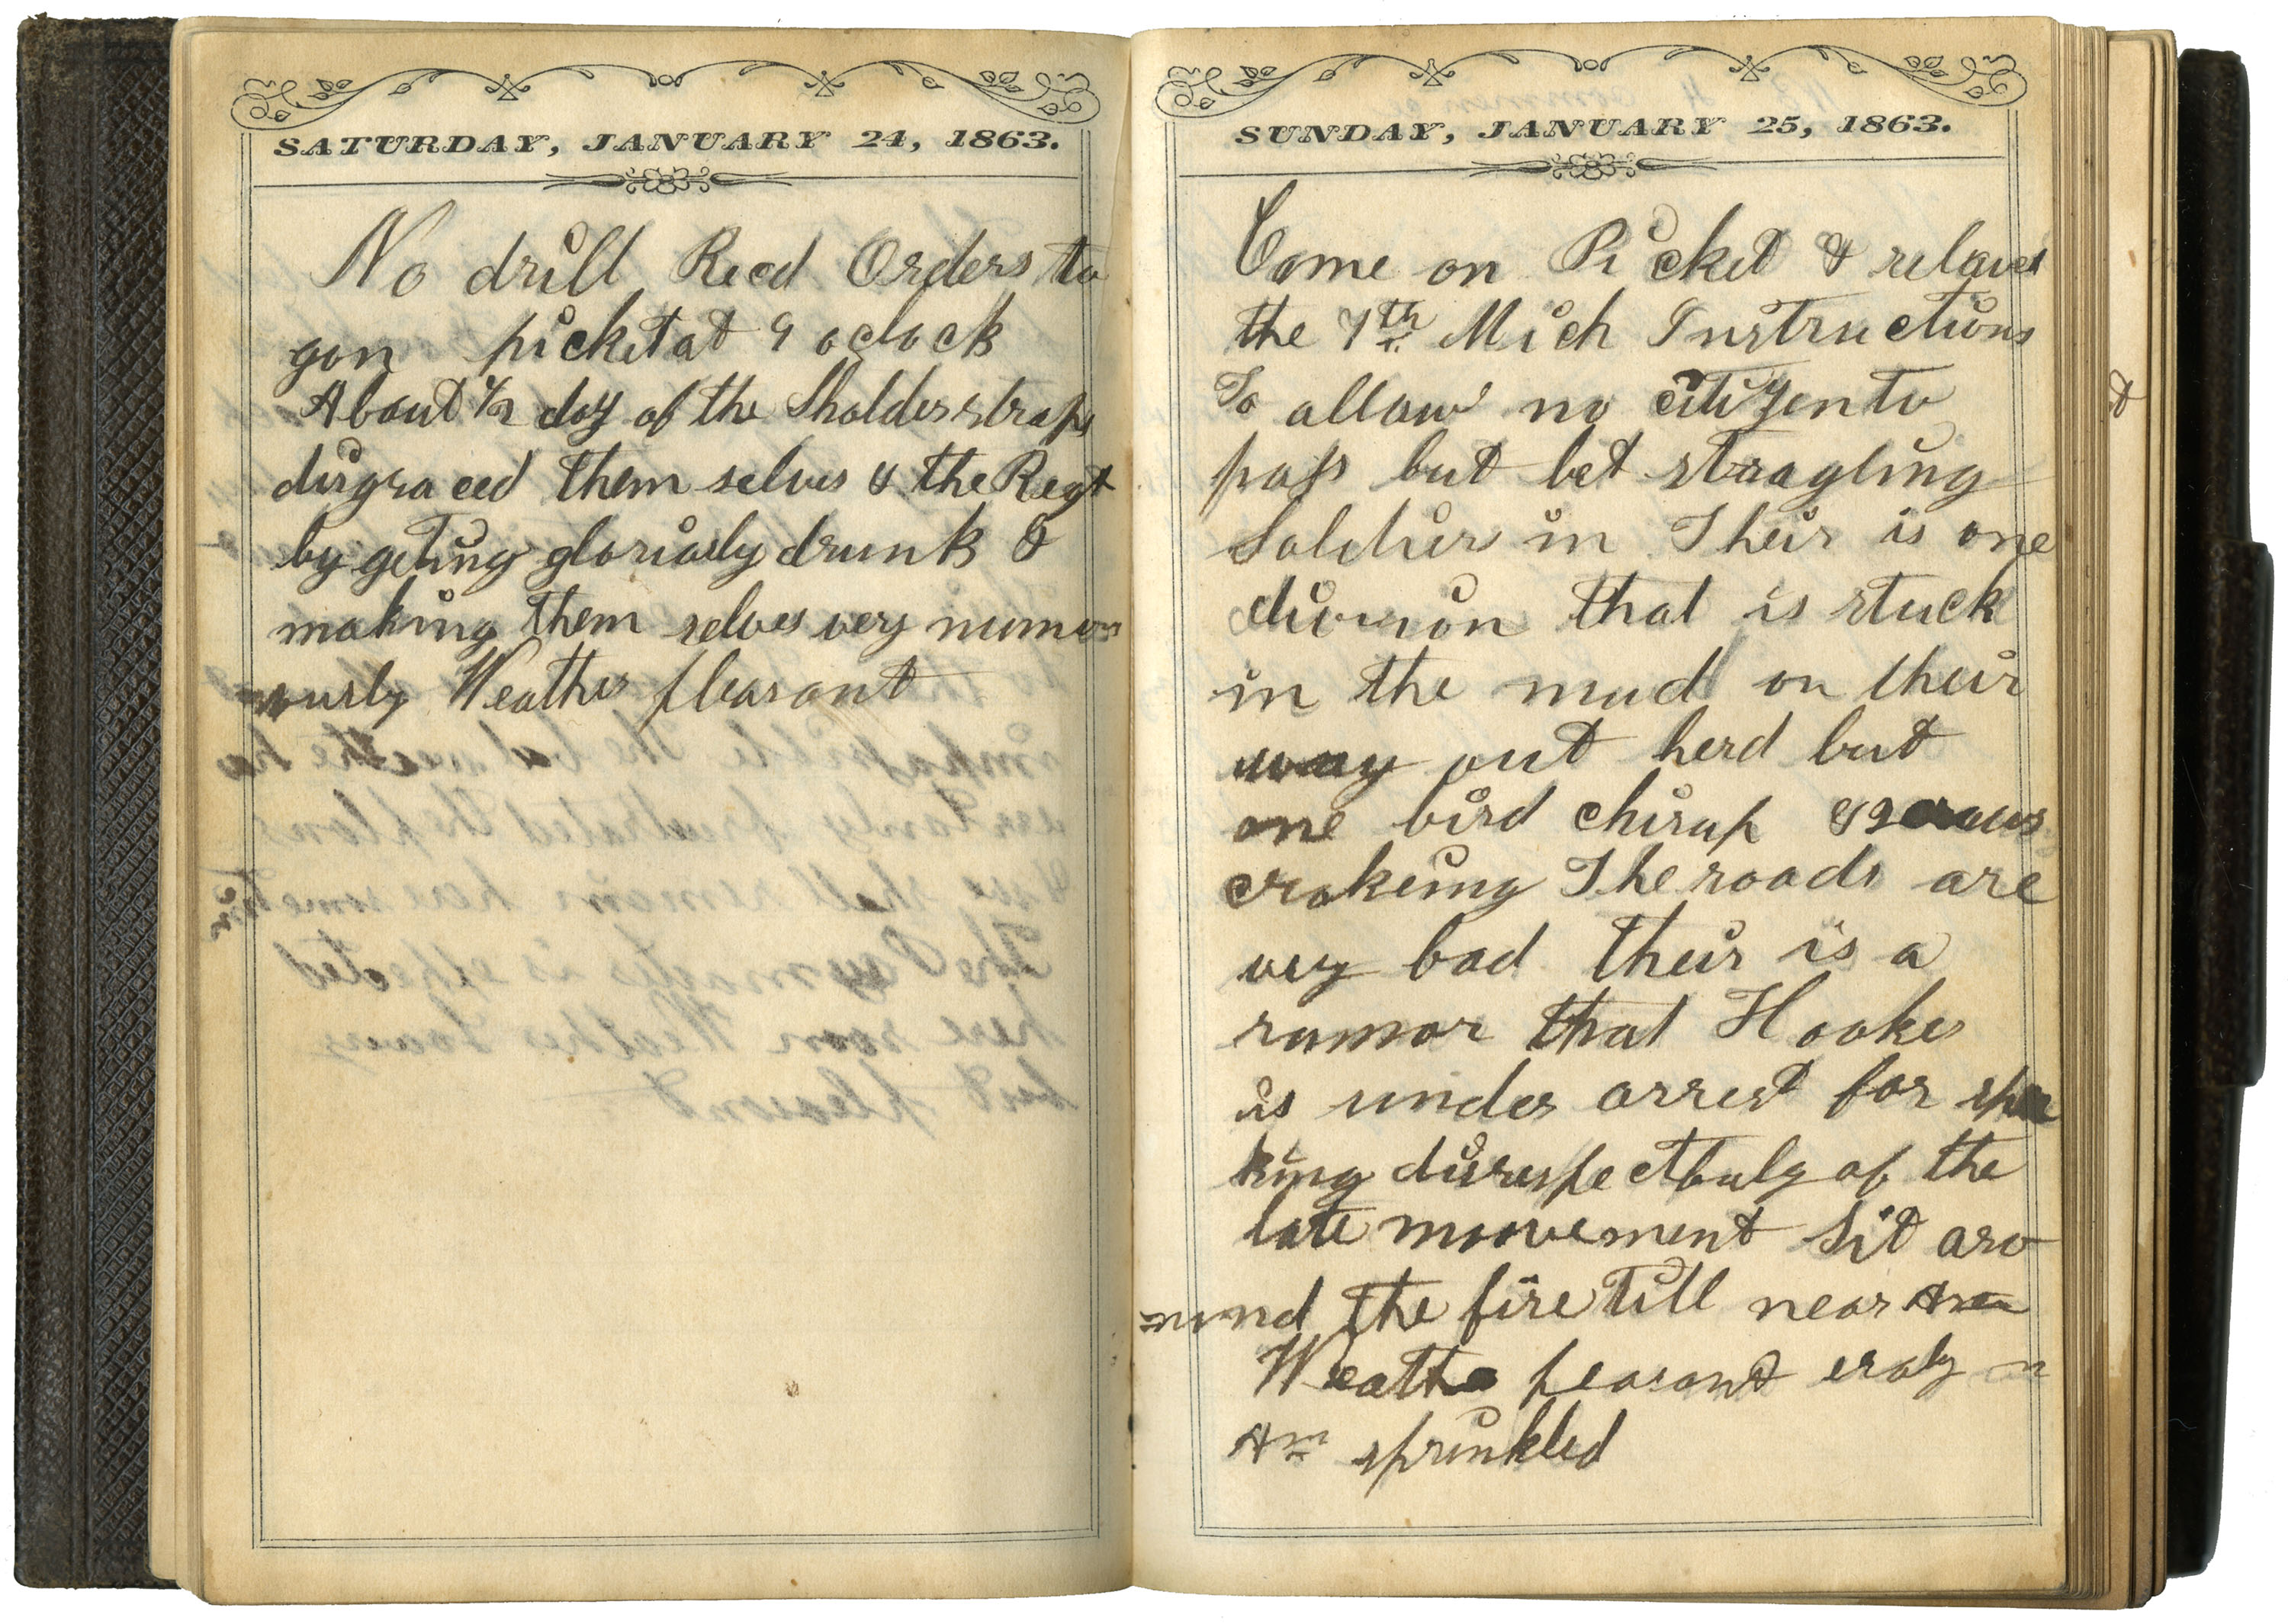 SATURDAY, JANUARY 24, 1863.
No drill Recd Orders to
gon picket at 9 oclock
About 1/2 doz of the Sholder straps
disgraced them selves & the Regt
by geting gloriously drunk &
making them selves very numer
ously Weather pleasant
SUNDAY, JANUARY 25, 1863.
Come on Picket & releived
the 7th Mich Instructions
To allow no citizen to
pass but let stragling
Soldiers in Their is one
division that is stuck
in the mud on their
way out herd but
one bird chirup & 2 crows
crokeing The roads are
very bad their is a
rumor that Hooker
is under arrest for spea
king disrespectfuly of the
late moovement Sit aro
und the fire till near
Weather peasant eraly in
Am sprinkled